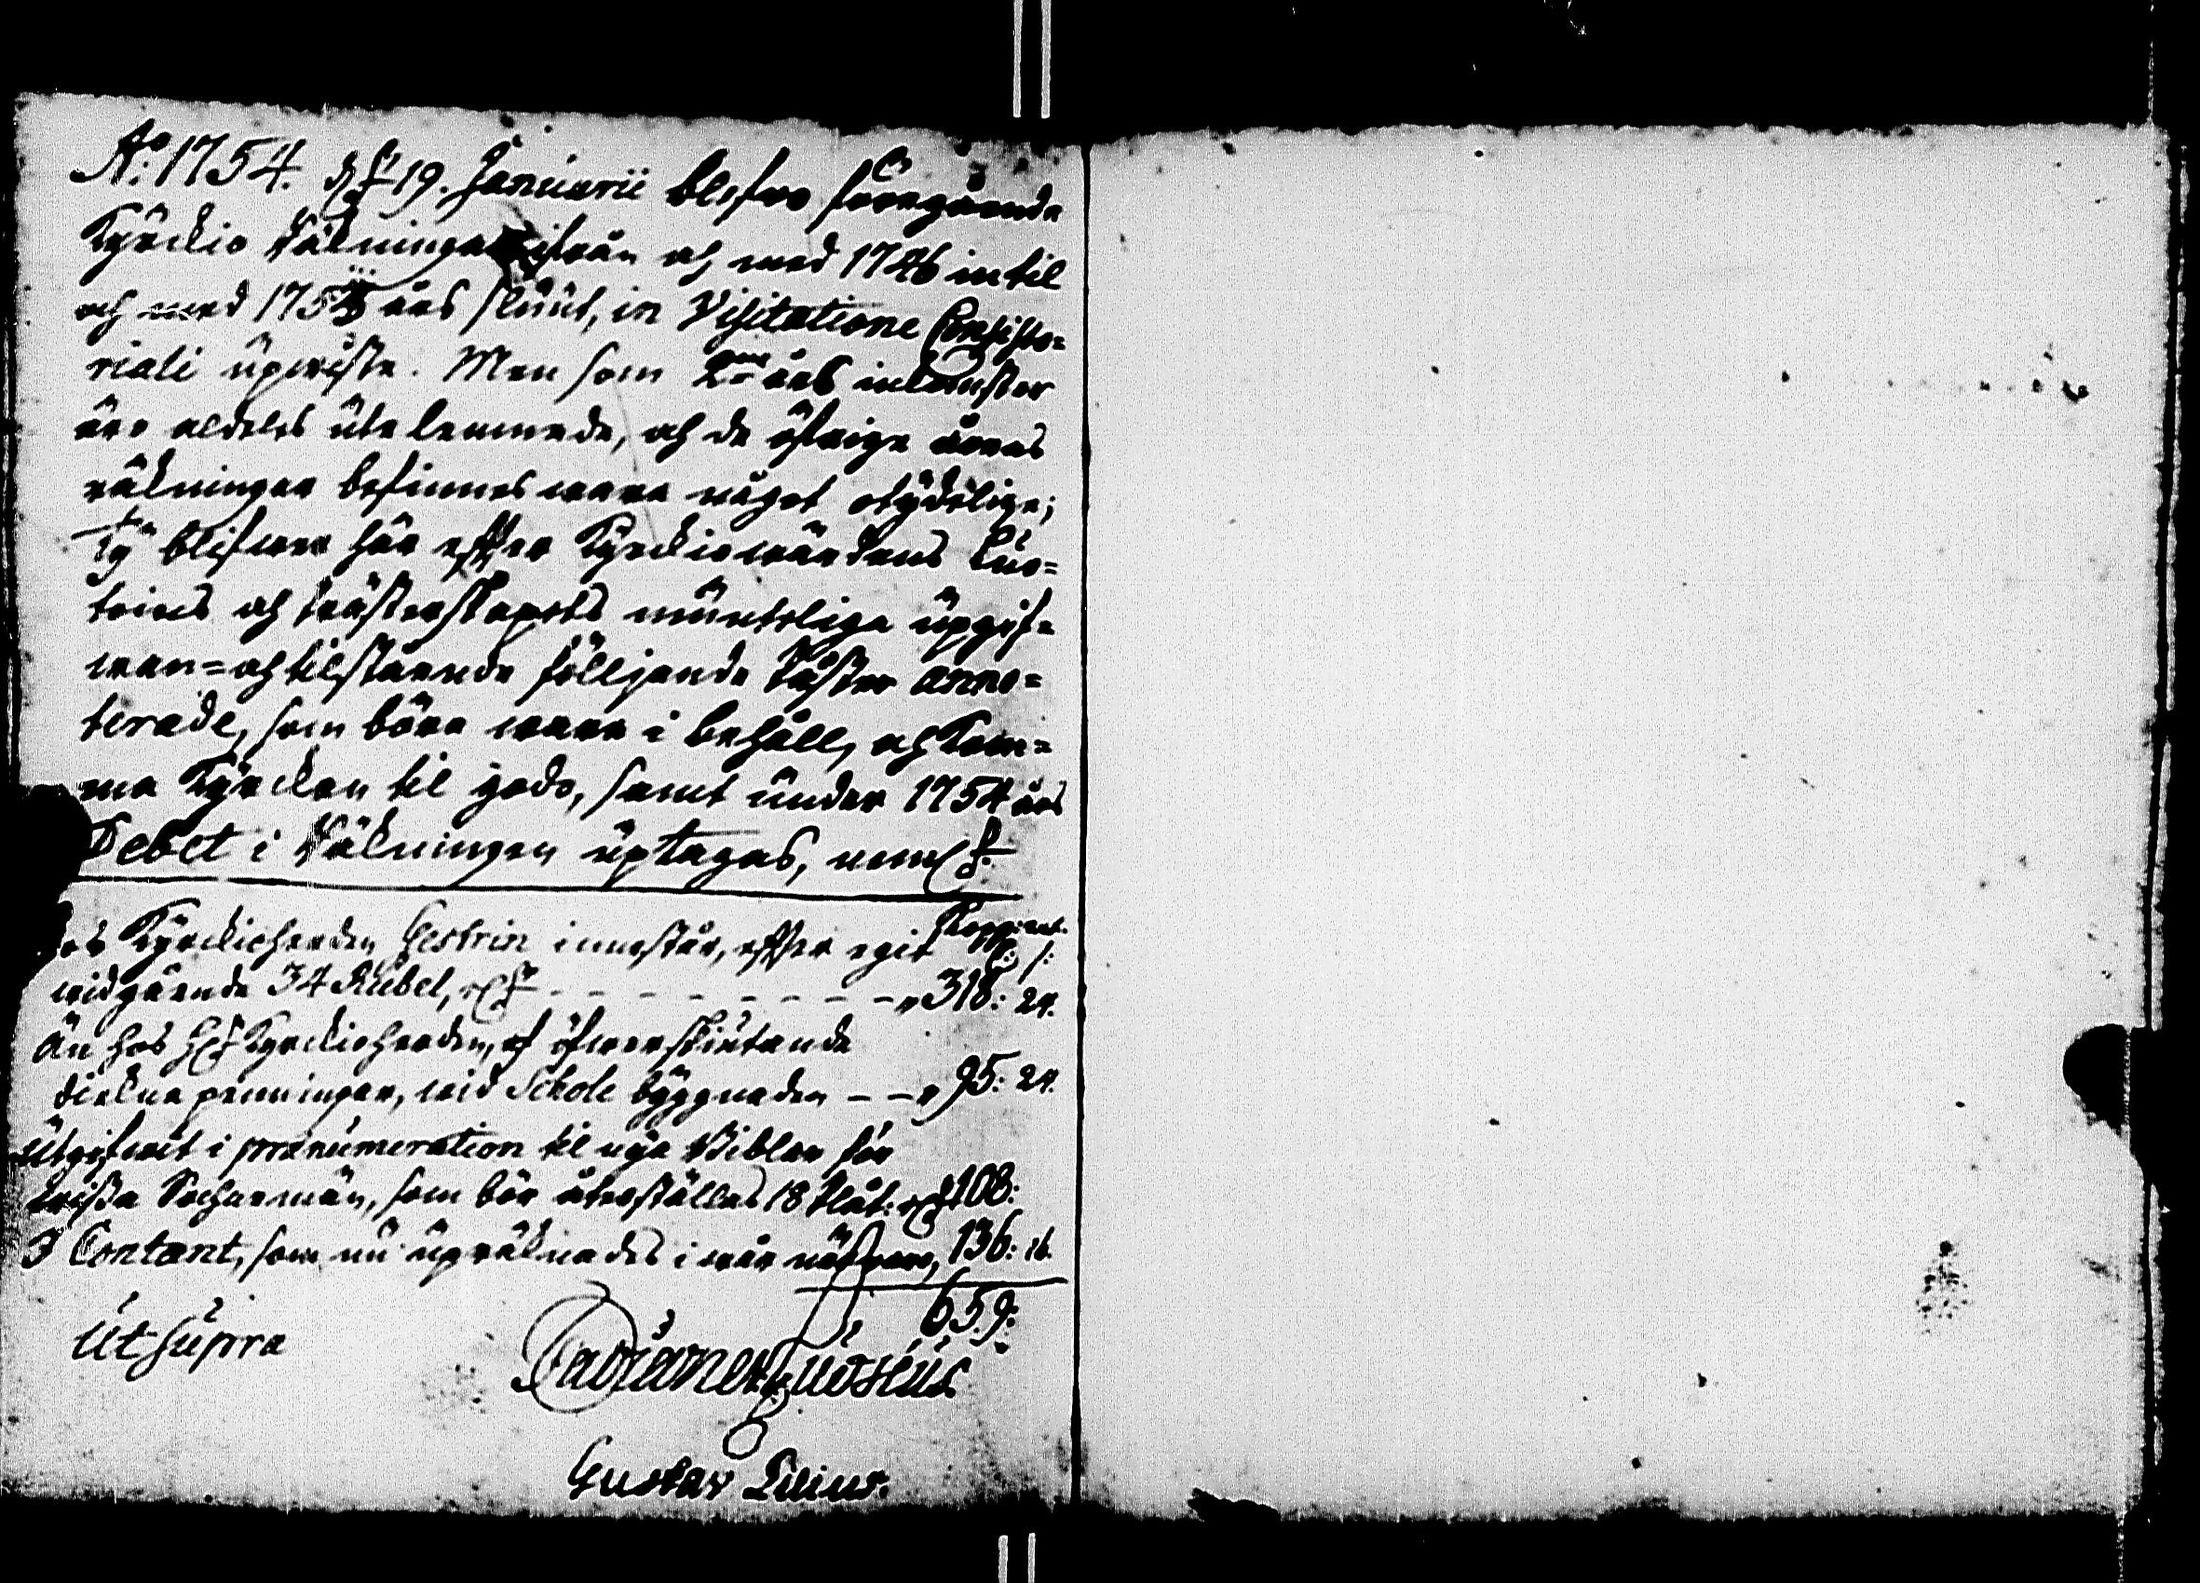 Ao: 1754. d. 19. Januarii blefwo föregående
Kyrckio Räkningar ifrån och med 1746 in til
och med 1753 års sluut, in Visitatione Consisto=
riali upwiste. Men som 2ne års inkomster
äro aldeles utelemnade, och de öfrige årens
räkningar befinnes wara något otydelige;
Ty blifwer här efter Kyrckiowärdens
och Prästerskapets munteliga upgif=
wan= och tilstående följjande Påster anno=
terade, som böra wara i behåll, och kom=
ma Kyrckan til godo, samt under 1754 års
Debet i Räkningen uptagas, neml.
Kopp: mt.
hos Kyrckioherden Gestrin innestår, efter egit
widgående 34 Rubel, - - - - - - - - " 318: 24.
Än hos H. Kyrckioherden, af öfwerskiutande
penningar, wid Schole byggnaden - - " 95: 24.
Utgifwit i prænumeration til nya Biblar för
wissa Sochnemän, som bör återställas 18 Plåt: 108:
I Contant, som nu upräknades i wår närwaro, 136: 16.
659:
Ut supra
Gustav Lilius.